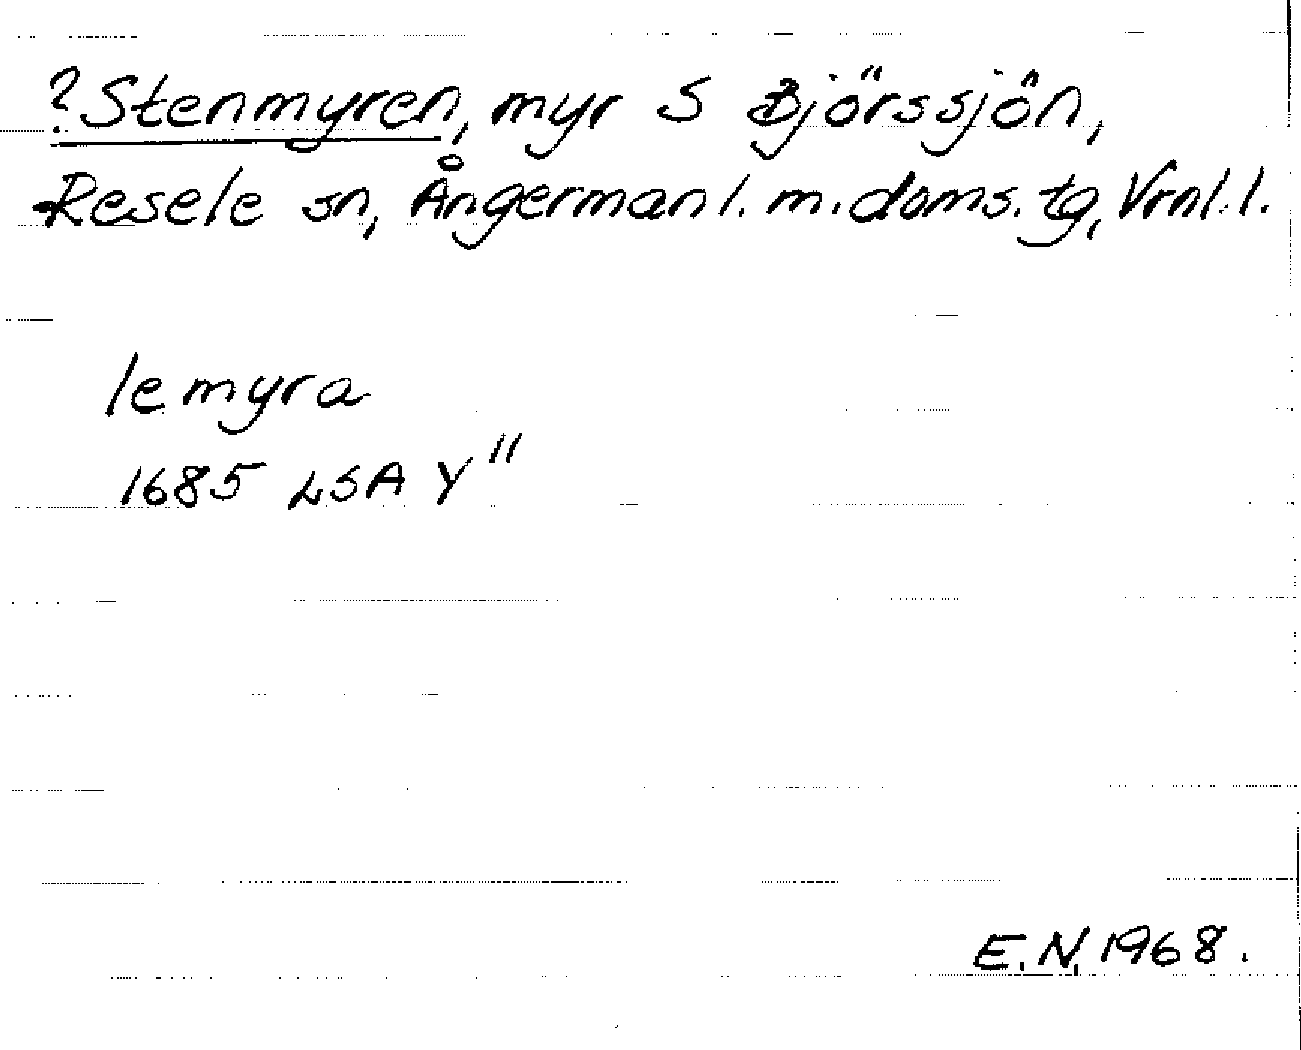 ?Stenmyren, myr S Björssjön,
Resele sn, Ångermanl. m. doms. tg, Vrnl. l.
lemyra
1685 LSA Y"
E.N. 1968.